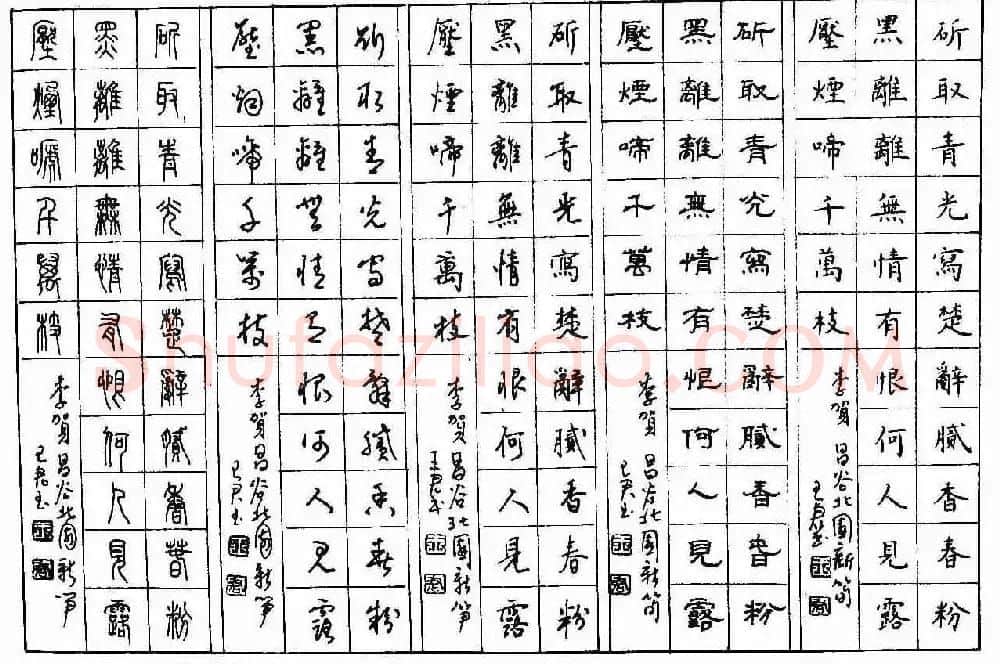 斫取青光寫楚辭膩香春粉
黑離離無情有恨何人見露
壓煙啼千萬枝
李賀 昌谷北園新筍
斫取青光寫楚辭膩香春粉
黑離離無情有恨何人見露
壓煙啼千萬枝
李賀 昌谷北園新筍
斫取青光寫楚辭膩香春粉
黑離離無情有恨何人見露
壓煙啼千萬枝
李賀 昌谷北園新笋
斫取青光寫楚辭膩香春粉
黑離離無情有恨何人見露
壓煙啼千萬枝
李賀 昌谷北園新笋
斫取青光寫楚辭膩香春粉
黑離離無情有恨何人見露
壓煙啼千萬枝
李賀 昌谷北園新笋
Shufaziliao.com